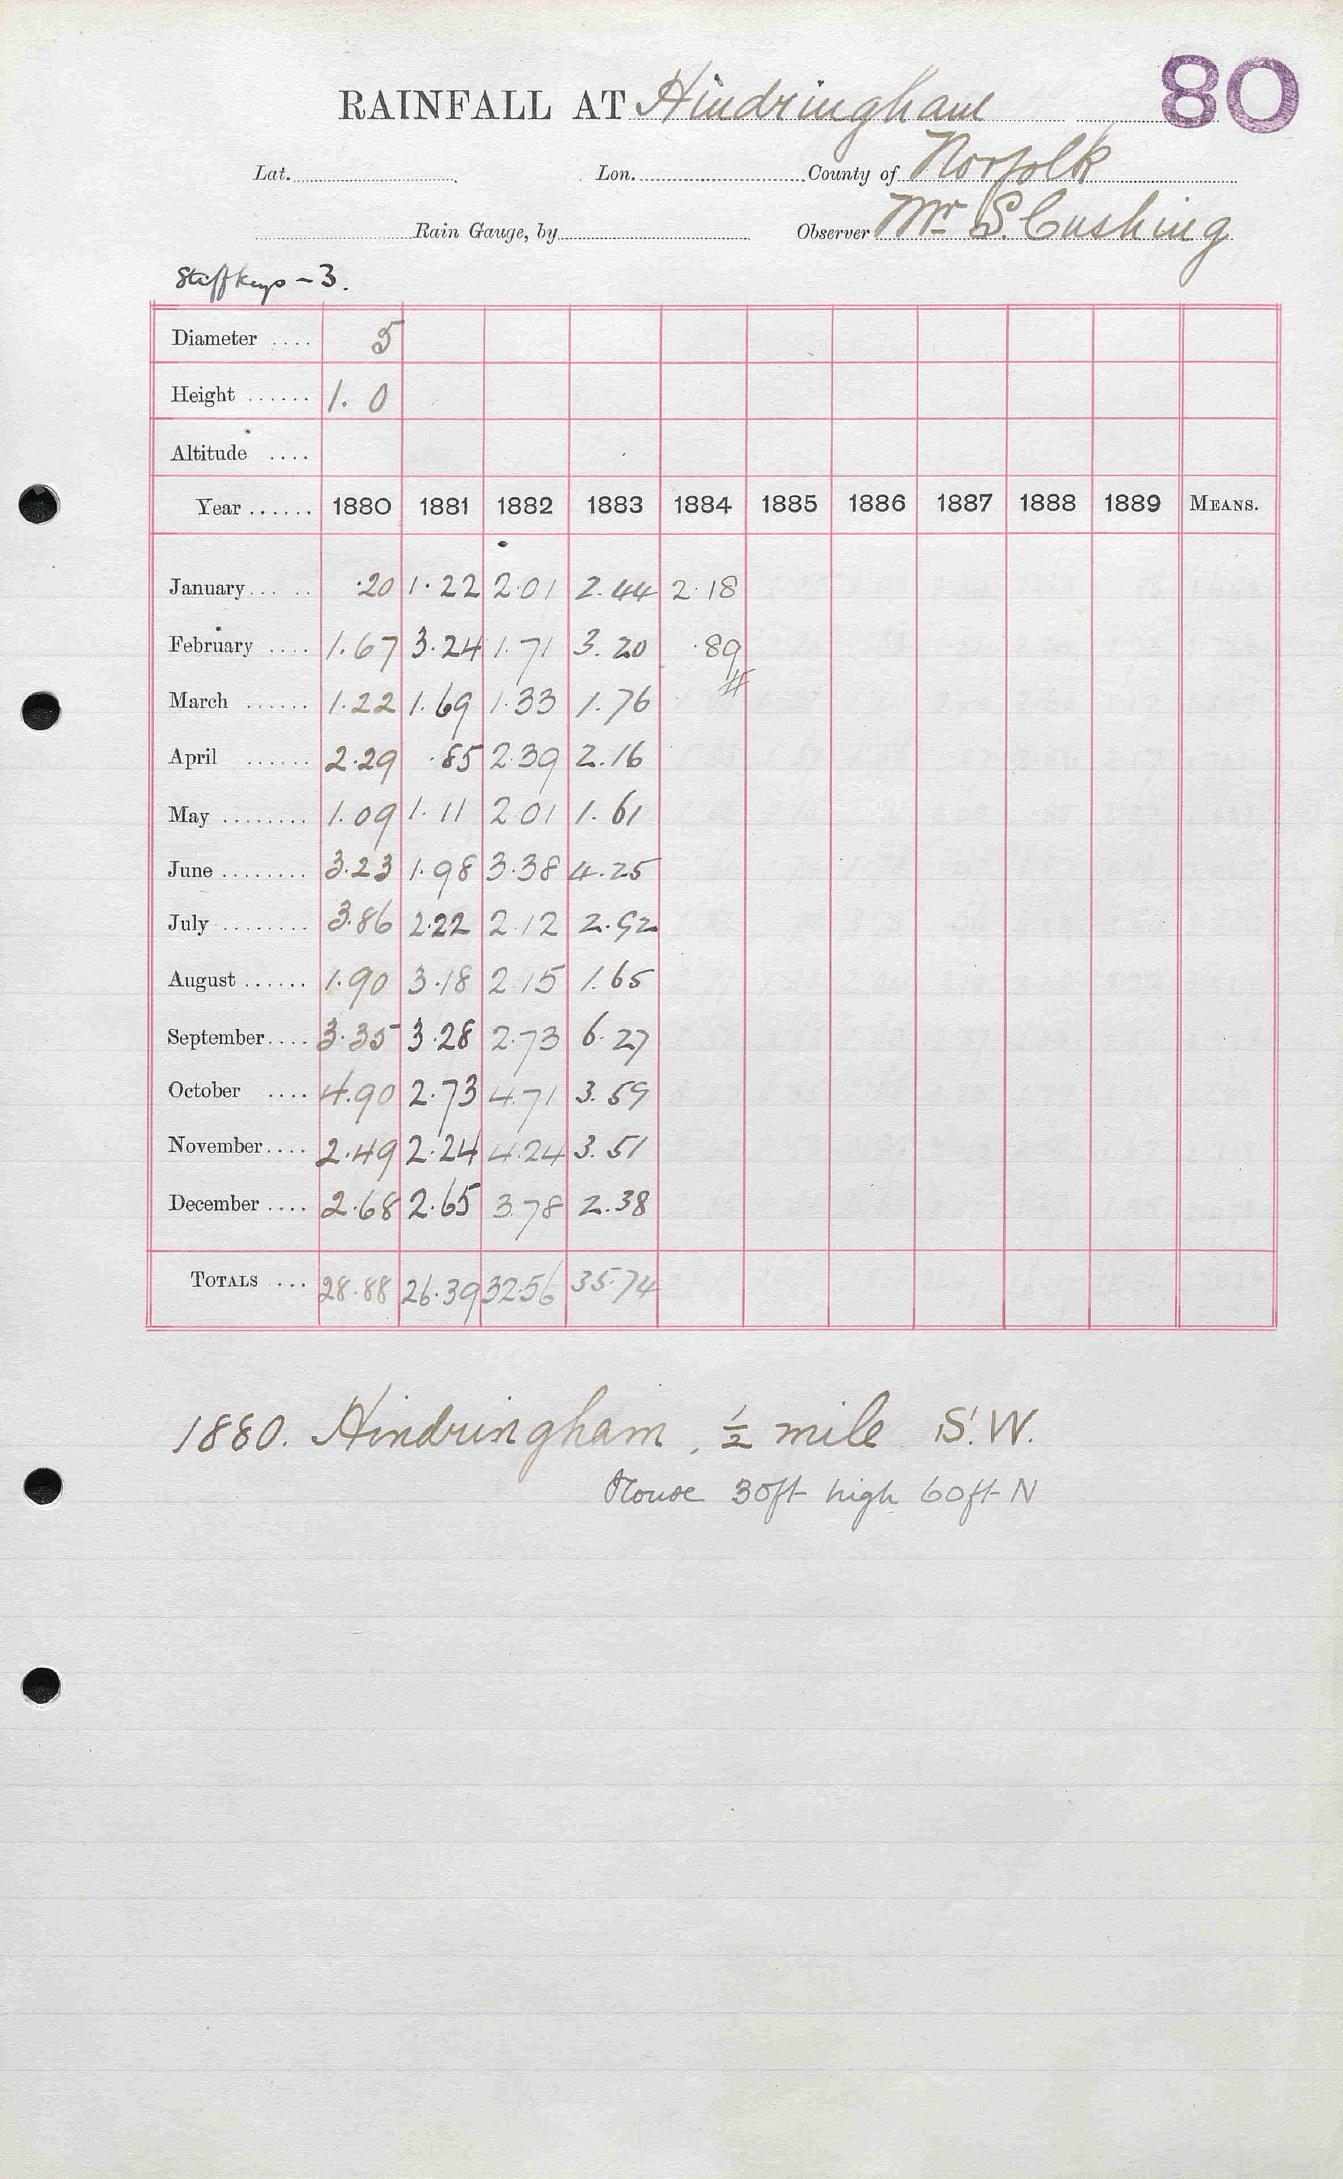 RAINFALL AT Hindringham 80
Lat. Lon. County of Norfolk
Rain Gauge, by Observer Mr S. Cushing
Stiffkeys - 3.
Diameter .... 5
Height ...... 1. 0
Altitude ....
Year ...... 1880 1881 1882 1883 1884 1885 1886 1887 1888 1889 MEANS.
January ... .. .20 1.22 2.01 2.44 2.18
February .... 1.67 3.24 1.71 3.20 .89
March ...... 1.22 1.69 1.33 1.76
April ...... 2.29 .85 2.39 2.16
May ........ 1.09 1.11 2.01 1.61
June ........ 3.23 1.98 3.38 4.25
July ........ 3.86 2.22 2.12 2.92
August ...... 1.90 3.18 2.15 1.65
September .... 3.35 3.28 2.73 6.27
October .... 4.90 2.73 4.71 3.59
November .... 2.49 2.24 4.24 3.51
December .... 2.68 2.65 3.78 2.38
TOTALS ... 28.88 26.39 32.56 35.74
1880. Hindringham, ½ mile S.W.
House 30ft high 60ft N